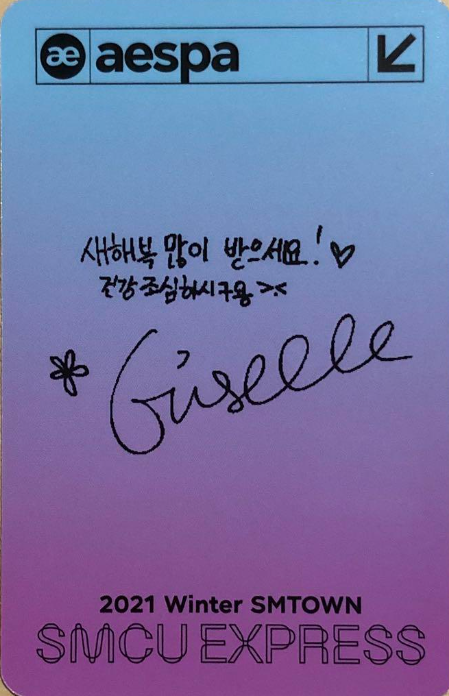 ae aespa
새해복 많이 받으세요! ♡
건강 조심하시구용 >.<
* Giselle
2021 Winter SMTOWN
SMCU EXPRESS